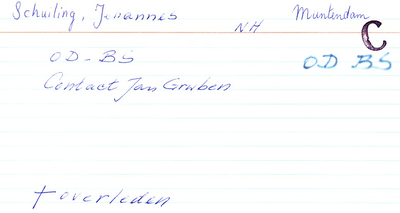 Schuiling, Johannes NH Muntendam
C
OD-BS OD BS
Contact Jan Gruben
† overleden